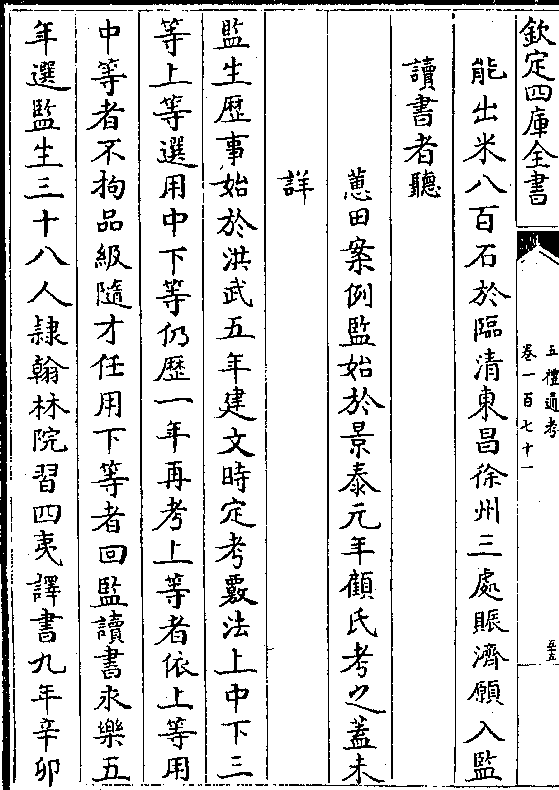 欽定四庫全書
五禮通考
卷一百七十一
能出米八百石於臨清東昌徐州三處賑濟願入監
讀書者聽
蕙田案例監始於景泰元年顧氏考之蓋未
詳
監生歴事始於洪武五年建文時定考覈法上中下三
等上等選用中下等仍歷一年再考上等者依上等用
中等者不拘品級隨才任用下等者回監讀書永樂五
年選監生三十八人隷翰林院習四夷譯書九年辛卯